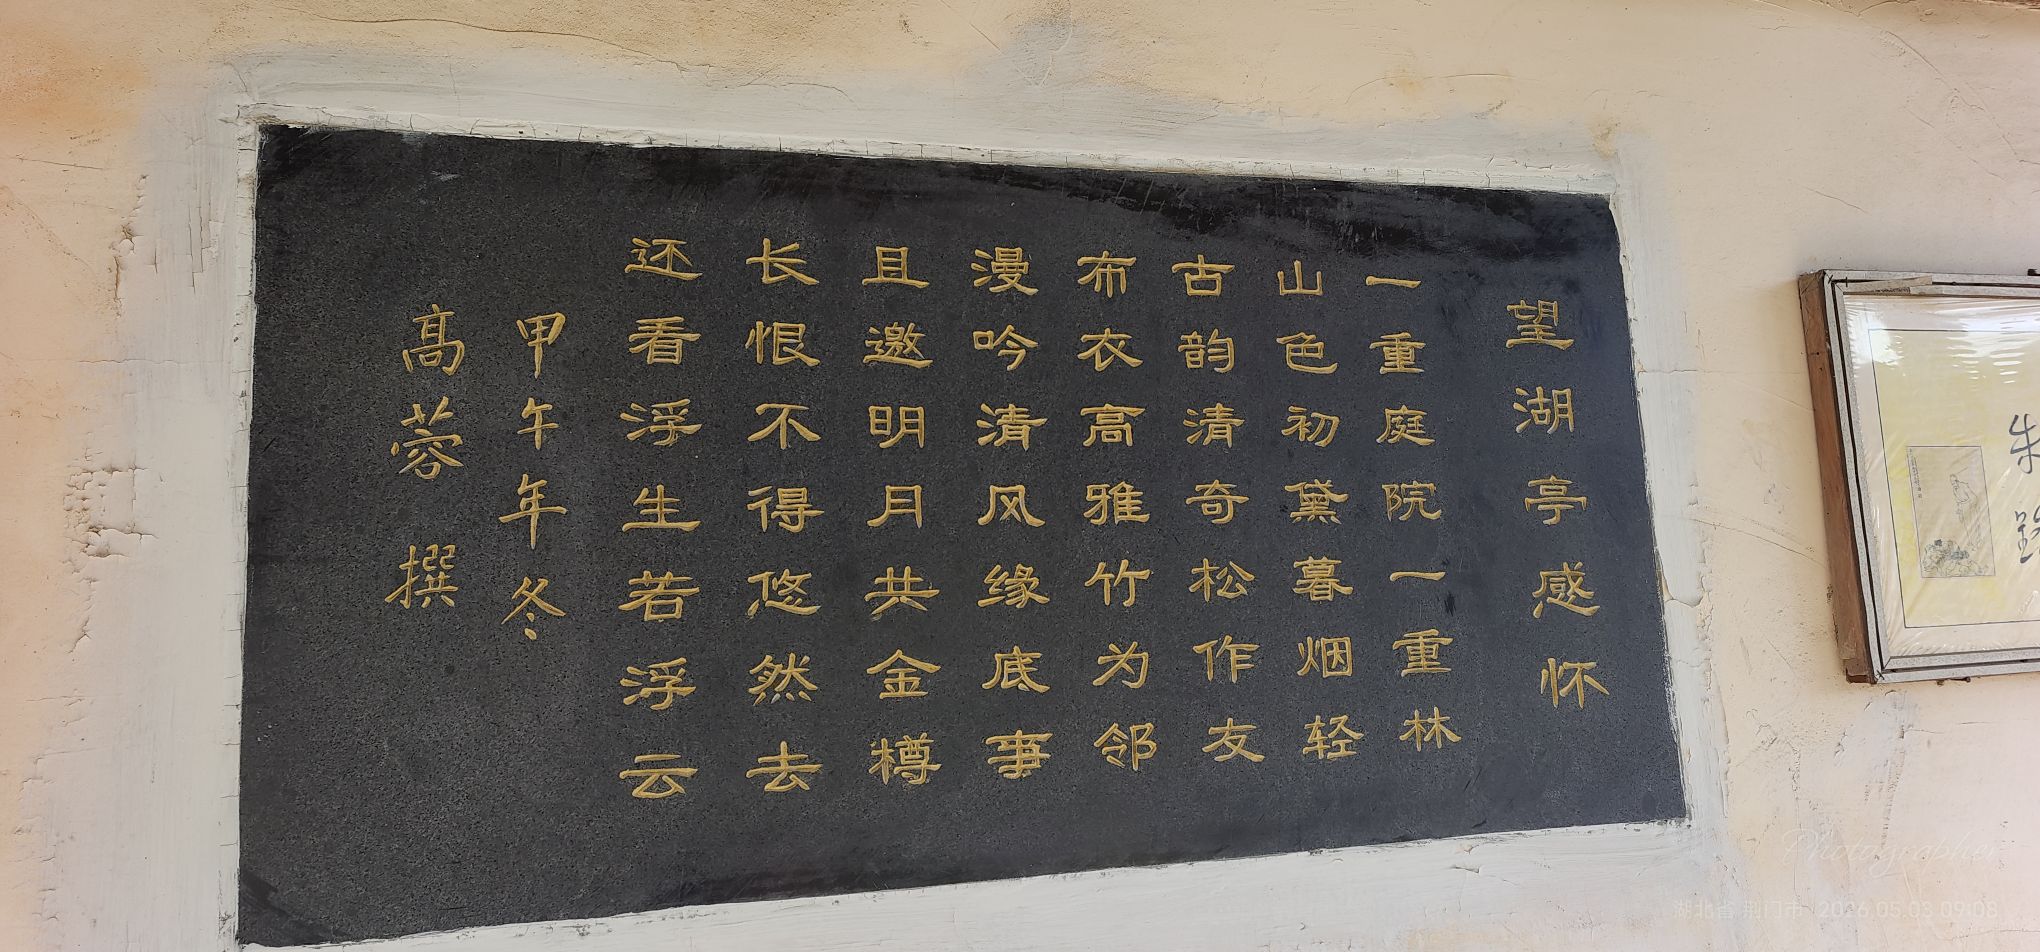 望湖亭感怀
一重庭院一重林
山色初黛暮烟轻
古韵清奇松作友
布衣高雅竹为邻
漫吟清风缘底事
且邀明月共金樽
长恨不得悠然去
还看浮生若浮云
甲午年冬
高蓉撰
朱
Photographer
湖北省 荆门市 2026.05.03 09:08